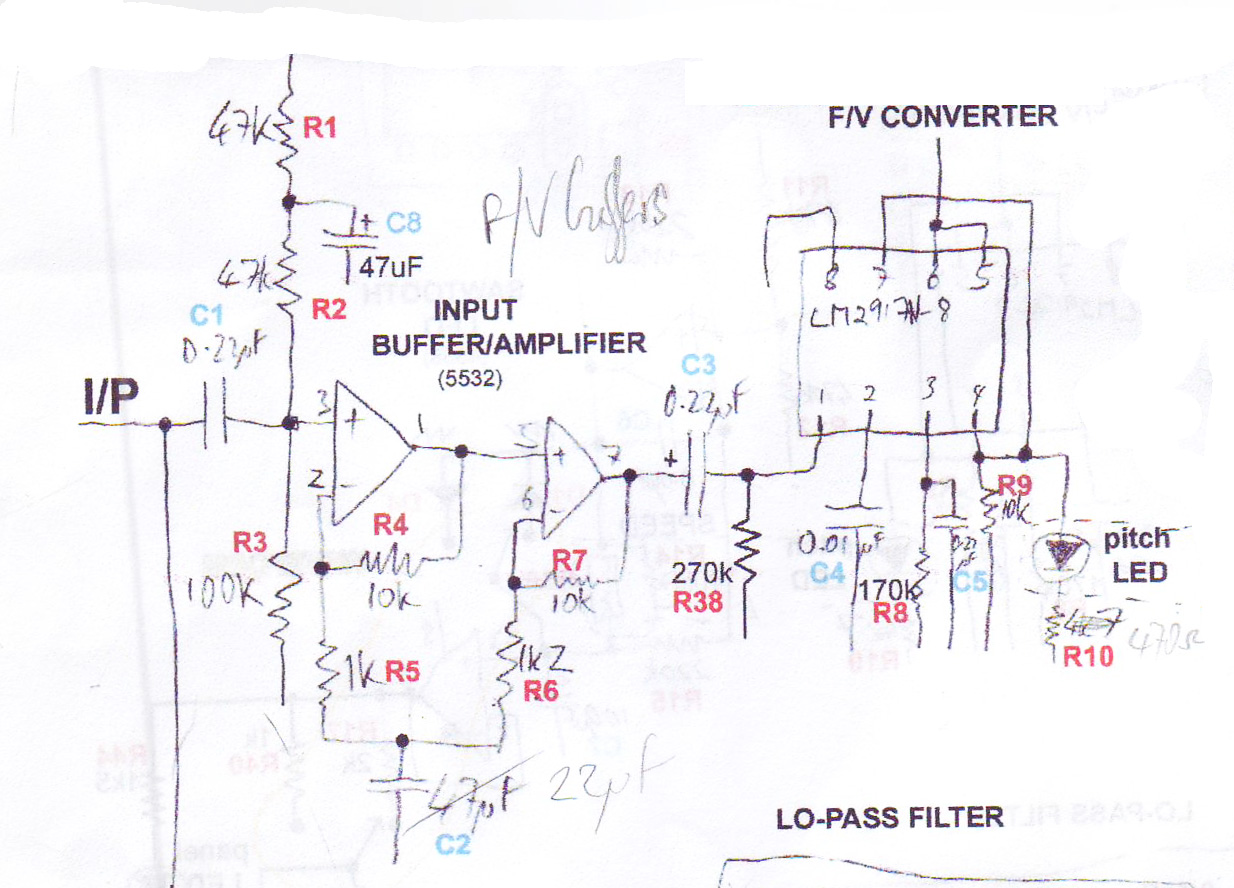 47k R1
F/V CONVERTER
C8
+
47uF
F/V buffers
47k
R2
8 7 6 5
LM2917N-8
C1
0.22µF
INPUT
BUFFER/AMPLIFIER
(5532)
C3
0.22µF
I/P
3 + 1
2 -
5 + 7
6 -
+
1 2 3 4
R4
10k
R3
100K
R7
10k
270k
R38
0.01µF
C4
170k
R8
C5
R9
10k
pitch
LED
470Ω
R10
1k R5
1k2
R6
47µF 22µF
C2
LO-PASS FILTER